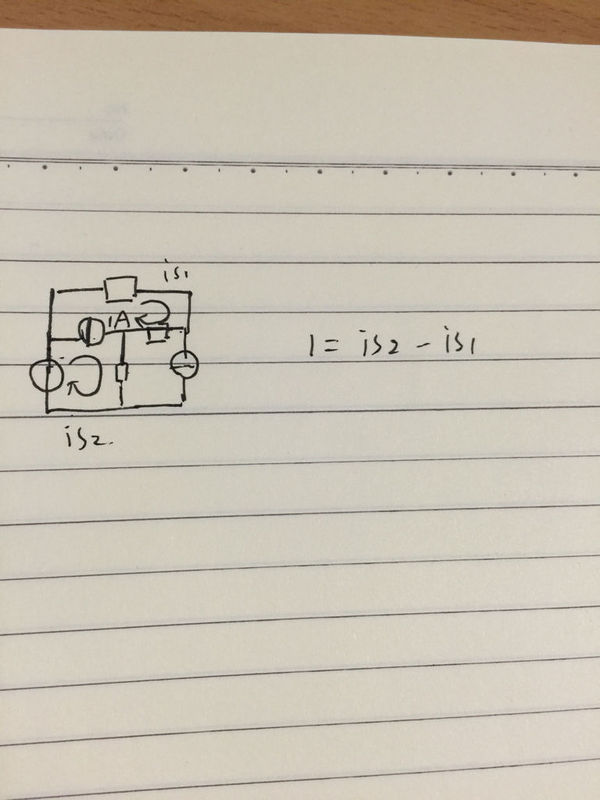 is1
1A
1 = is2 - is1
is2.